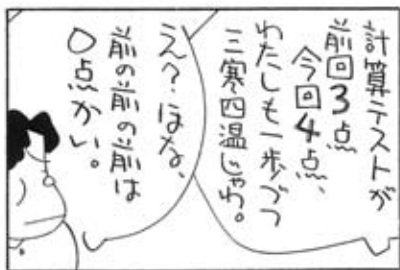 計算テストが
前回3点
今回4点、
わたしも一歩づつ
三寒四温じゃわ。
え?ほな、
前の前の前は
0点かい。